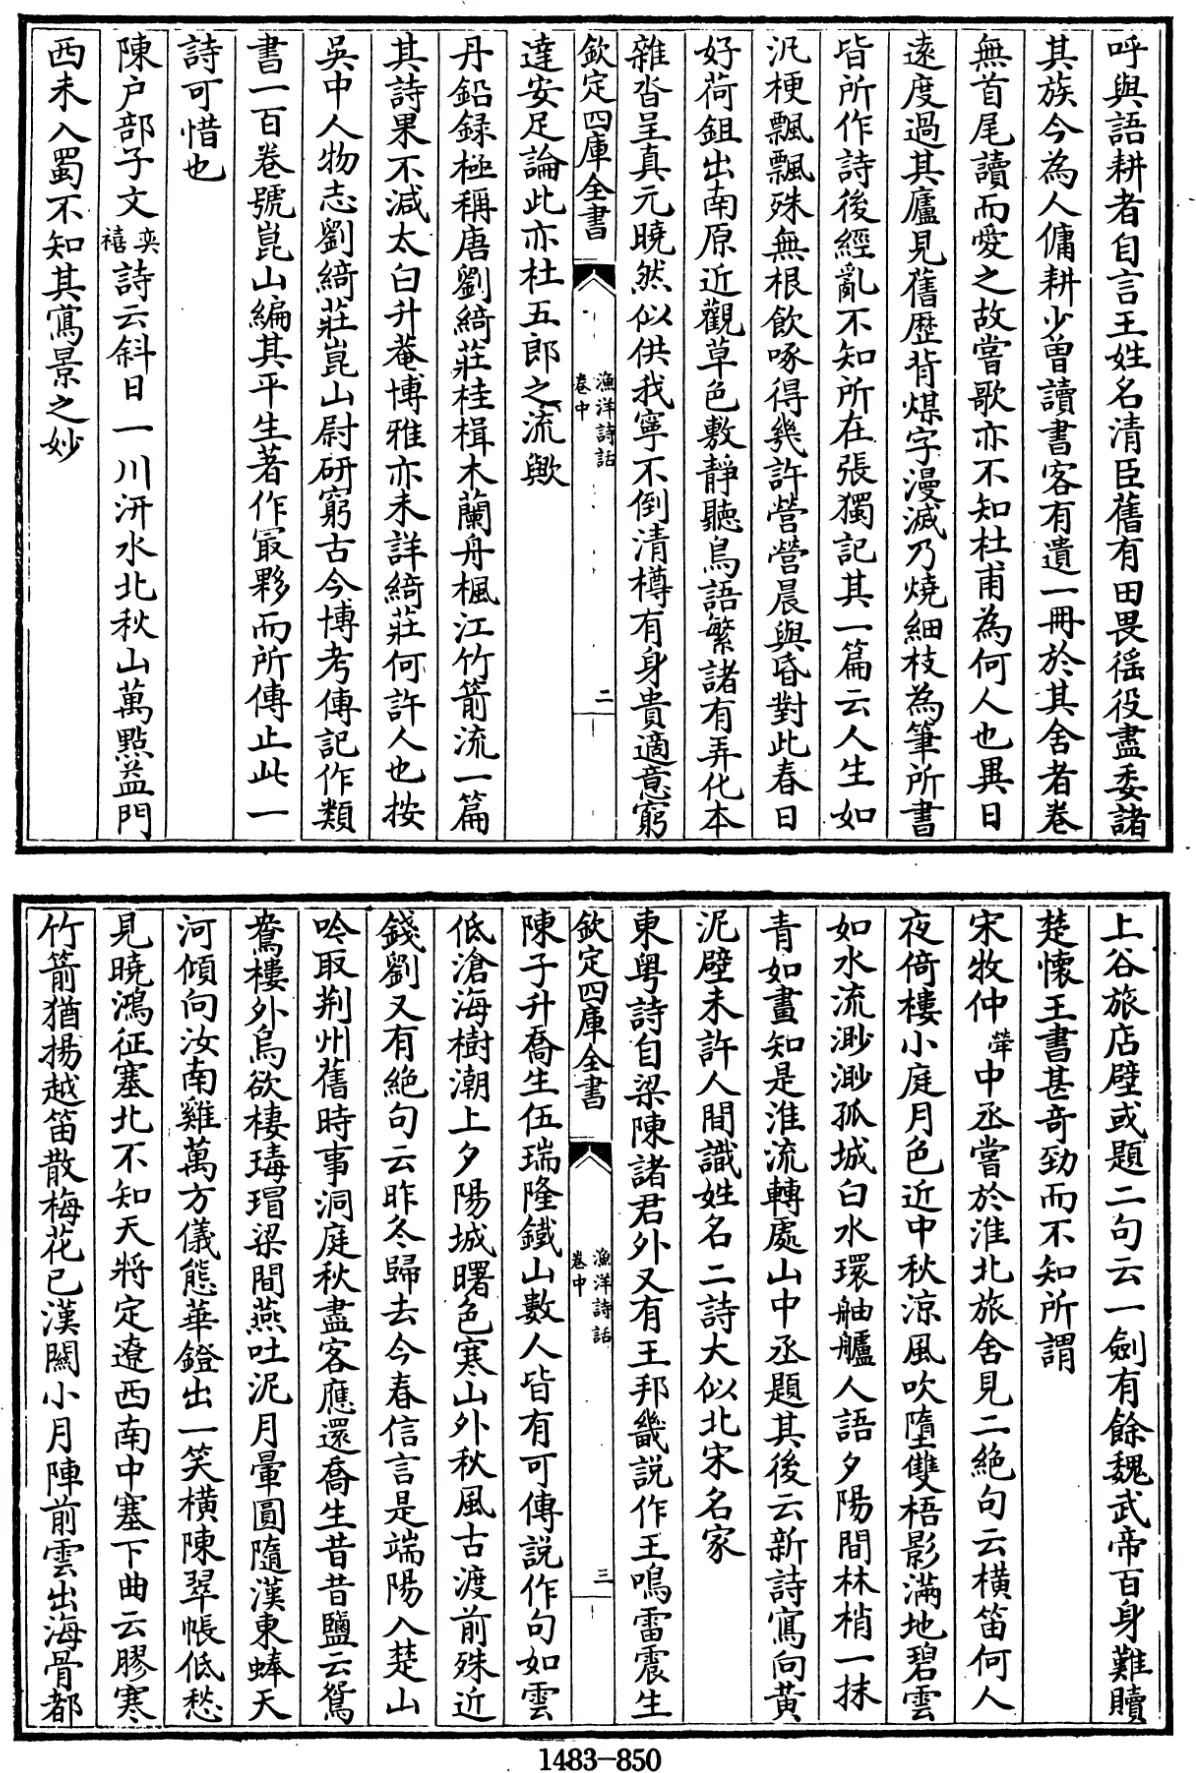 呼與語耕者自言王姓名清臣舊有田畏徭役盡委諸
其族今為人傭耕少曾讀書客有遺一冊於其舍者卷
無首尾讀而愛之故嘗歌亦不知杜甫為何人也異日
遠度過其廬見舊歷背煤字漫滅乃燒細枝為筆所書
皆所作詩後經亂不知所在張獨記其一篇云人生如
汎梗飄飄殊無根飲啄得幾許營營晨與昏對此春日
好荷鉏出南原近觀草色敷靜聽鳥語繁諸有弄化本
雜沓呈真元曉然似供我寧不倒清樽有身貴適意窮
欽定四庫全書
漁洋詩話
卷中
二
達安足論此亦杜五郎之流歟
丹鉛錄極稱唐劉綺莊桂楫木蘭舟楓江竹箭流一篇
其詩果不減太白升菴博雅亦未詳綺莊何許人也按
吳中人物志劉綺莊崑山尉研窮古今博考傳記作類
書一百卷號崑山編其平生著作冣夥而所傳止此一
詩可惜也
陳户部子文奕禧詩云斜日一川汧水北秋山萬點益門
西未入蜀不知其寫景之妙
上谷旅店壁或題二句云一劍有餘魏武帝百身難贖
楚懷王書甚奇勁而不知所謂
宋牧仲犖中丞嘗於淮北旅舍見二絶句云橫笛何人
夜倚樓小庭月色近中秋涼風吹墮雙梧影滿地碧雲
如水流渺渺孤城白水環舳艫人語夕陽間林梢一抹
青如畫知是淮流轉處山中丞題其後云新詩寫向黃
泥壁未許人間識姓名二詩大似北宋名家
東粤詩自梁陳諸君外又有王邦畿説作王鳴雷震生
欽定四庫全書
漁洋詩話
卷中
三
陳子升喬生伍瑞隆鐵山數人皆有可傳説作句如雲
低滄海樹潮上夕陽城曙色寒山外秋風古渡前殊近
錢劉又有絶句云昨冬歸去今春信言是端陽入楚山
吟取荆州舊時事洞庭秋盡客應還喬生昔昔鹽云鴛
鴦樓外烏欲棲瑇瑁梁間燕吐泥月暈圓隨漢東蜯天
河傾向汝南雞萬方儀態華鐙出一笑橫陳翠帳低愁
見曉鴻征塞北不知天將定遼西南中塞下曲云膠寒
竹箭猶揚越笛散梅花已漢關小月陣前雲出海骨都
1483-850